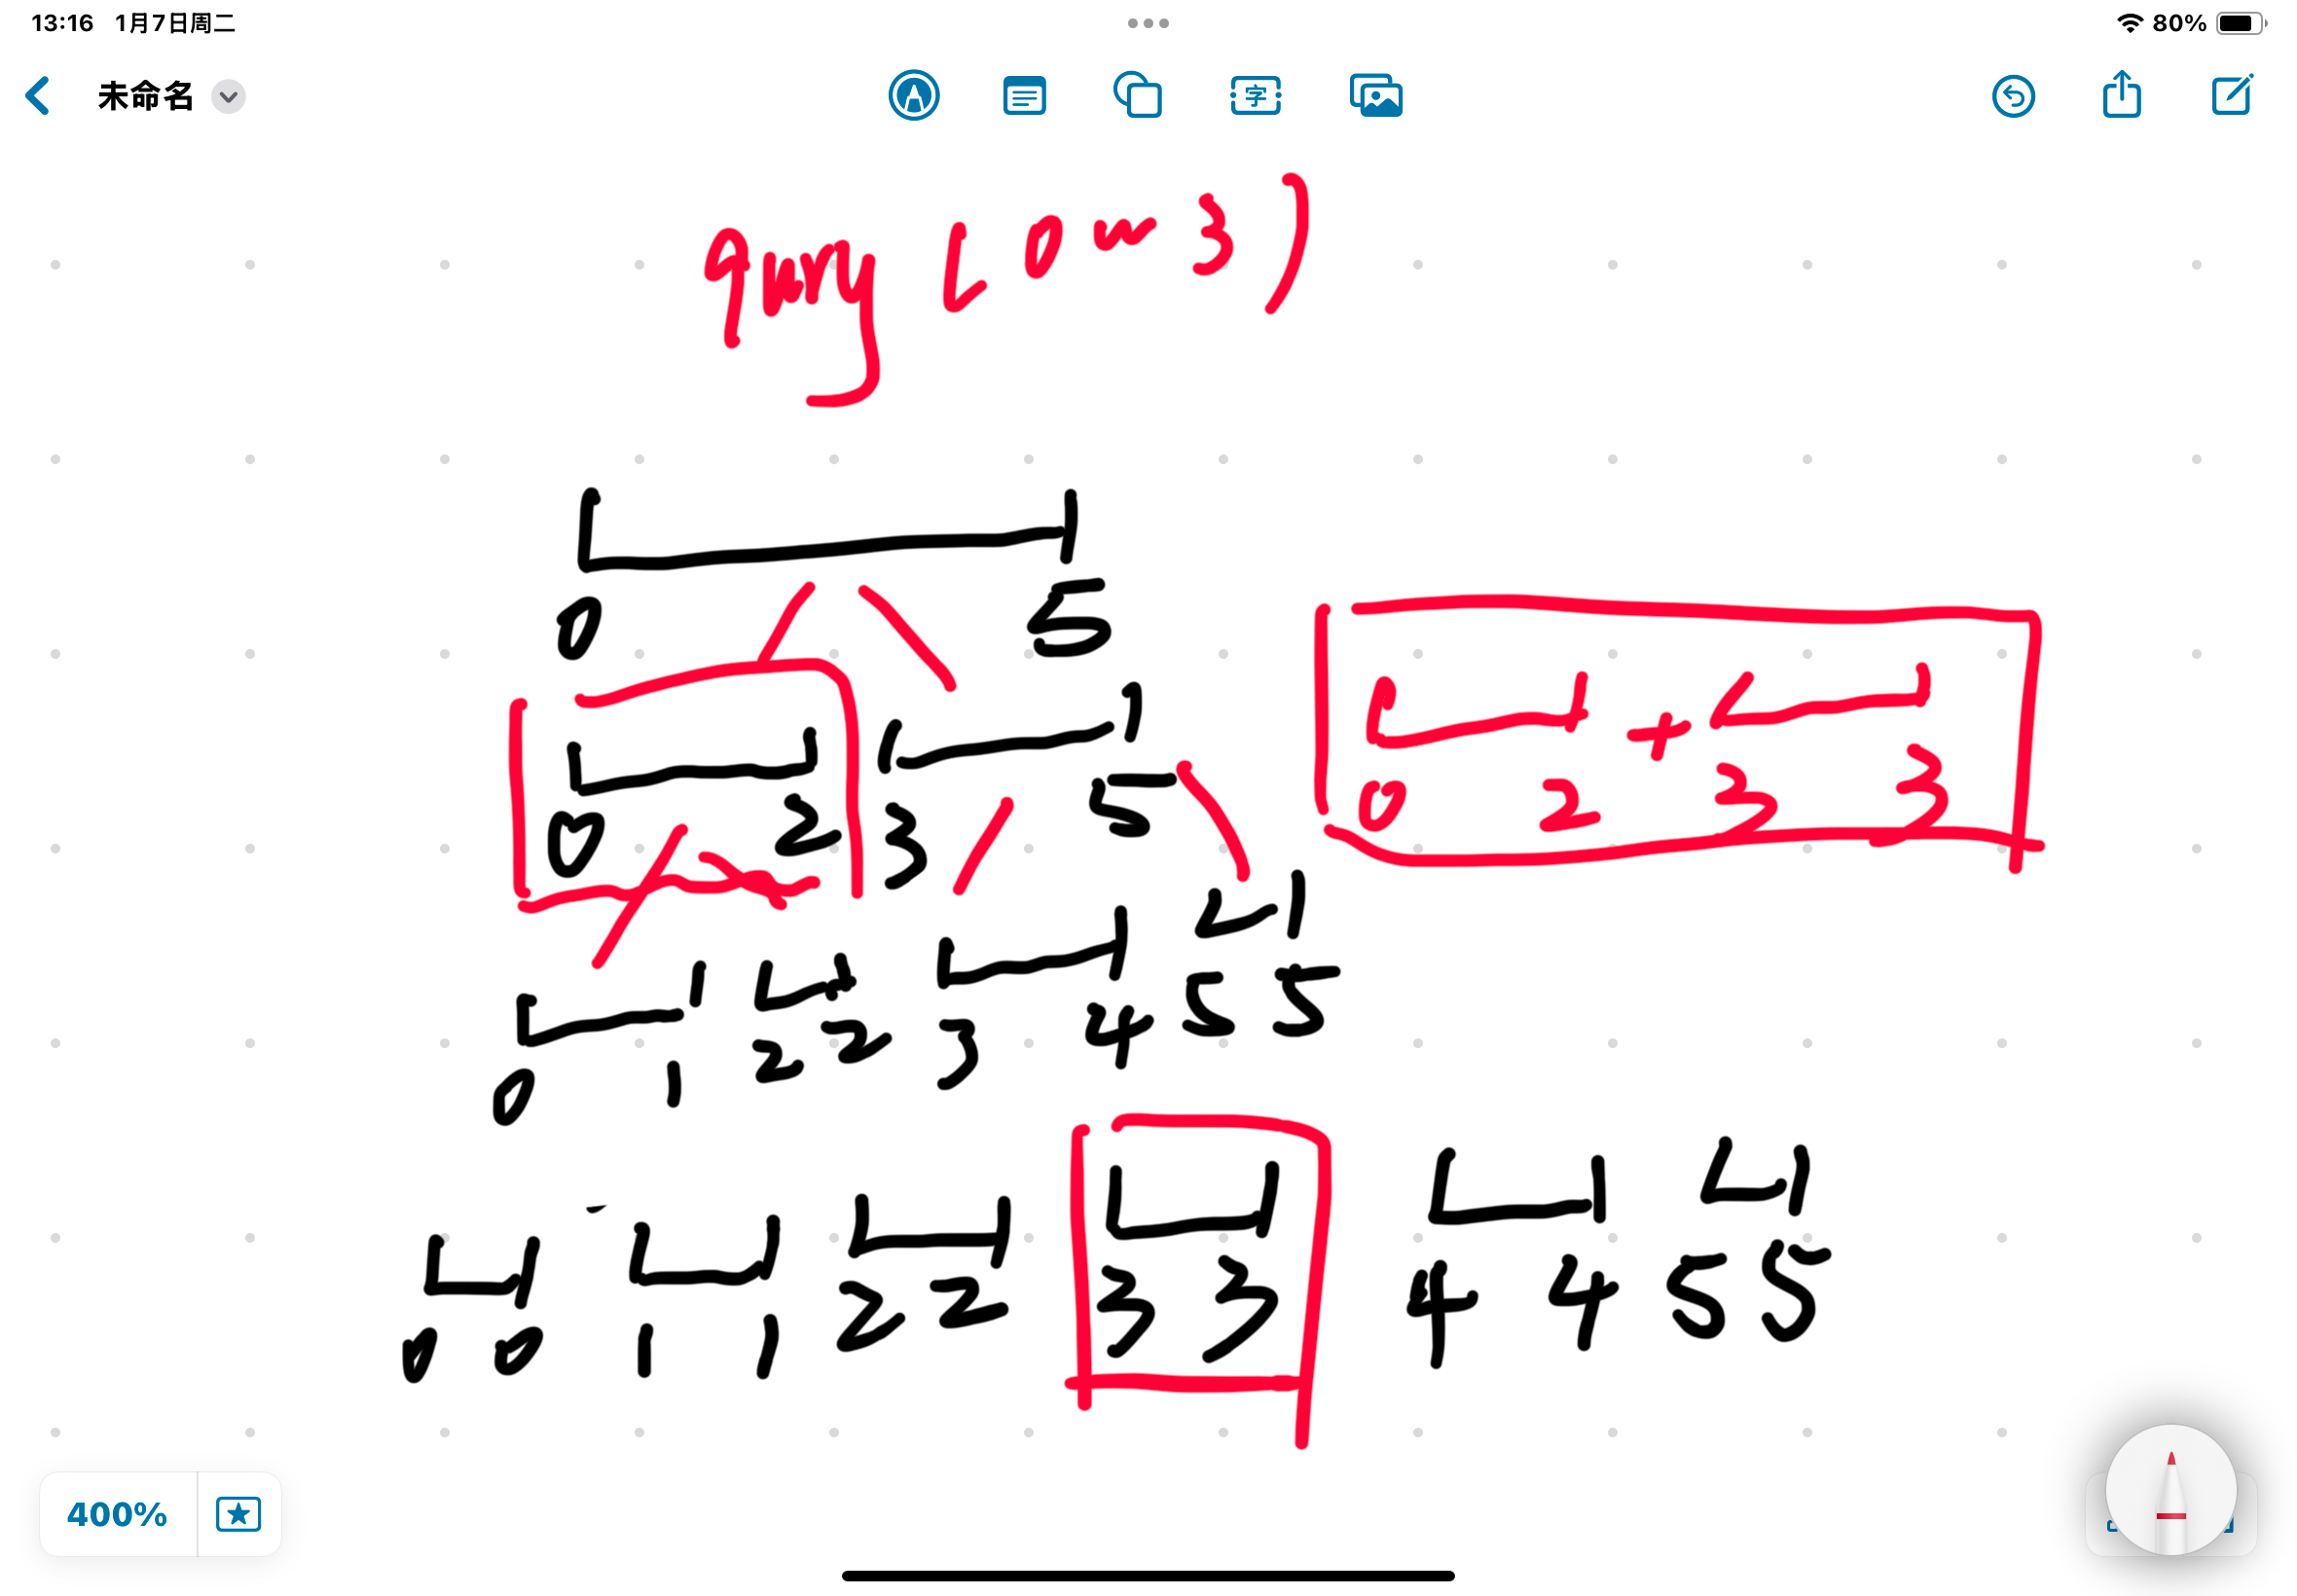 13:16 1月7日周二
80%
未命名
字
qury [0 ~ 3)
0 5
0 2 3 5
0 2 + 3 3
0 1 2 2 3 4 5 5
0 0 1 1 2 2 3 3 4 4 5 5
400%